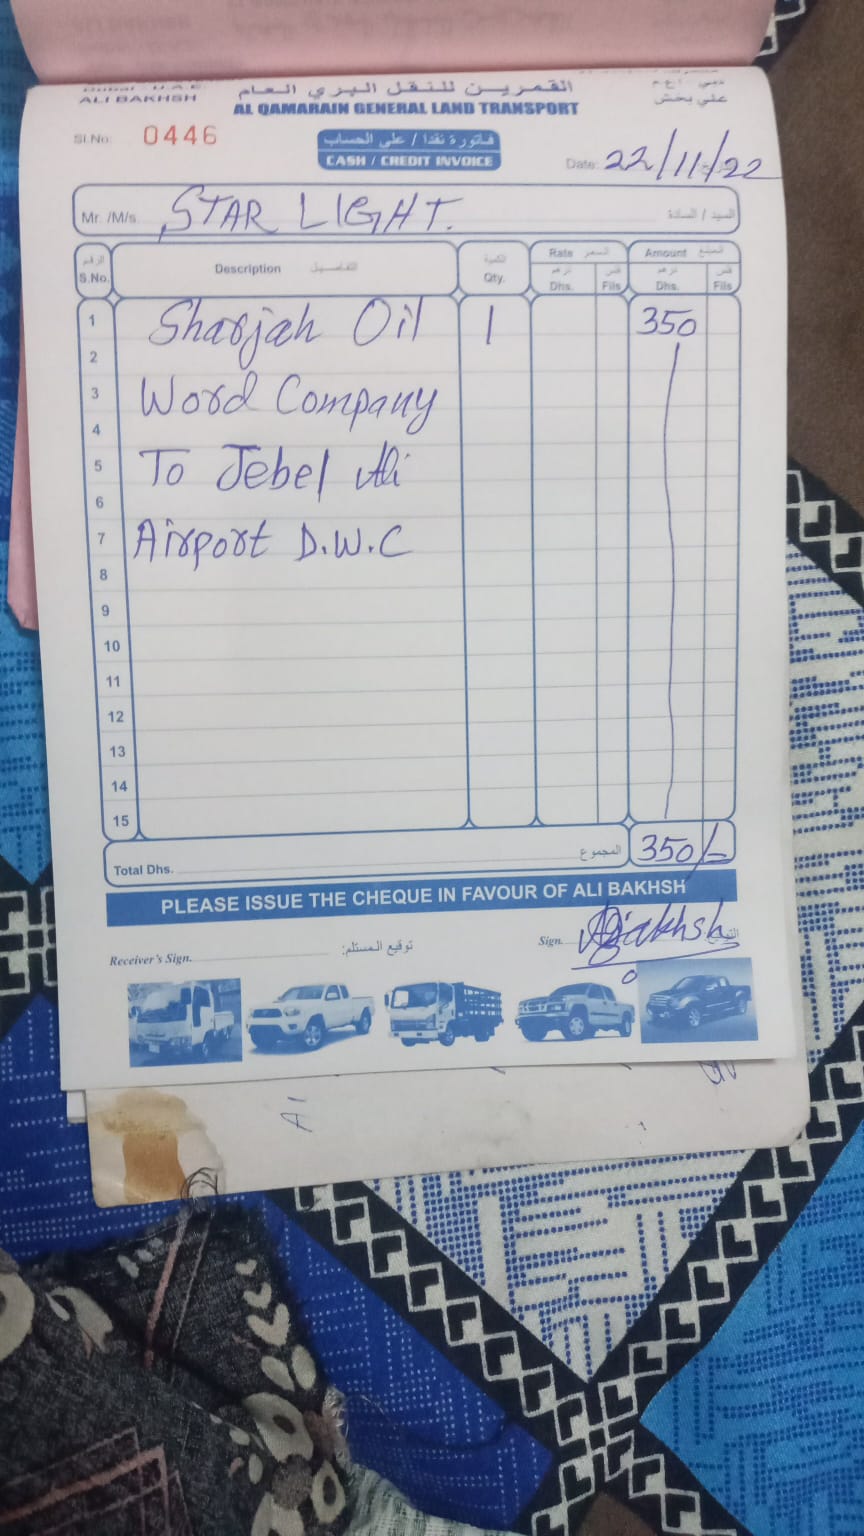 ALI BAKHSH
القمرين للنقل البري العام
علي بخش
AL QAMARAIN GENERAL LAND TRANSPORT
Sl.No. 0446
فاتورة نقدا / على الحساب
CASH / CREDIT INVOICE
Date: 22/11/22
Mr. /M/s. STAR LIGHT. السيد / السادة
الرقم S.No.
Description التفاصيل
الكمية Qty.
Rate السعر
Amount المبلغ
درهم Dhs. فلس Fils درهم Dhs. فلس Fils
1 Sharjah Oil 1 350
2
3 Word Company
4
5 To Jebel Ali
6
7 Airport D.W.C
8
9
10
11
12
13
14
15
Total Dhs. المجموع 350/-
PLEASE ISSUE THE CHEQUE IN FAVOUR OF ALI BAKHSH
Receiver's Sign. توقيع المستلم:
Sign.